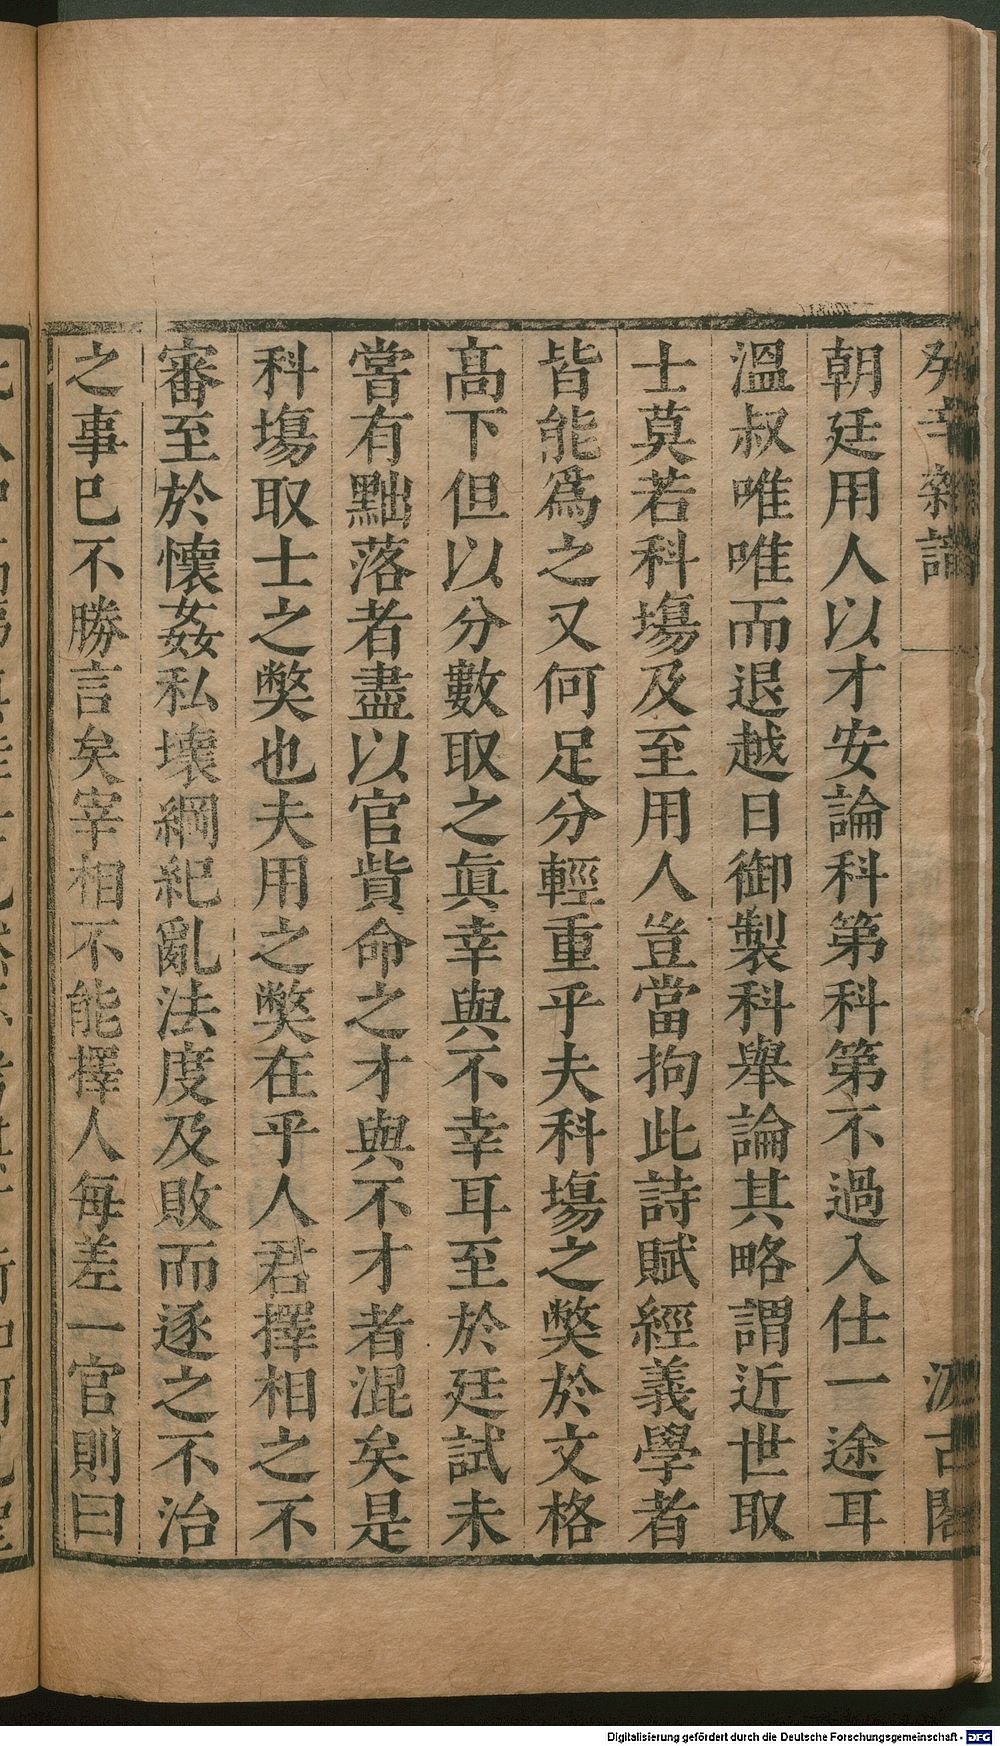 癸辛雜識
汲古閣
朝廷用人以才安論科第科第不過入仕一途耳
溫叔唯唯而退越日御製科舉論其略謂近世取
士莫若科塲及至用人豈當拘此詩賦經義學者
皆能爲之又何足分輕重乎夫科塲之獘於文格
高下但以分數取之眞幸與不幸耳至於廷試未
嘗有黜落者盡以官貲命之才與不才者混矣是
科塲取士之獘也夫用之獘在乎人君擇相之不
審至於懷姦私壞綱紀亂法度及敗而逐之不治
之事已不勝言矣宰相不能擇人每差一官則曰
Digitalisierung gefördert durch die Deutsche Forschungsgemeinschaft - DFG